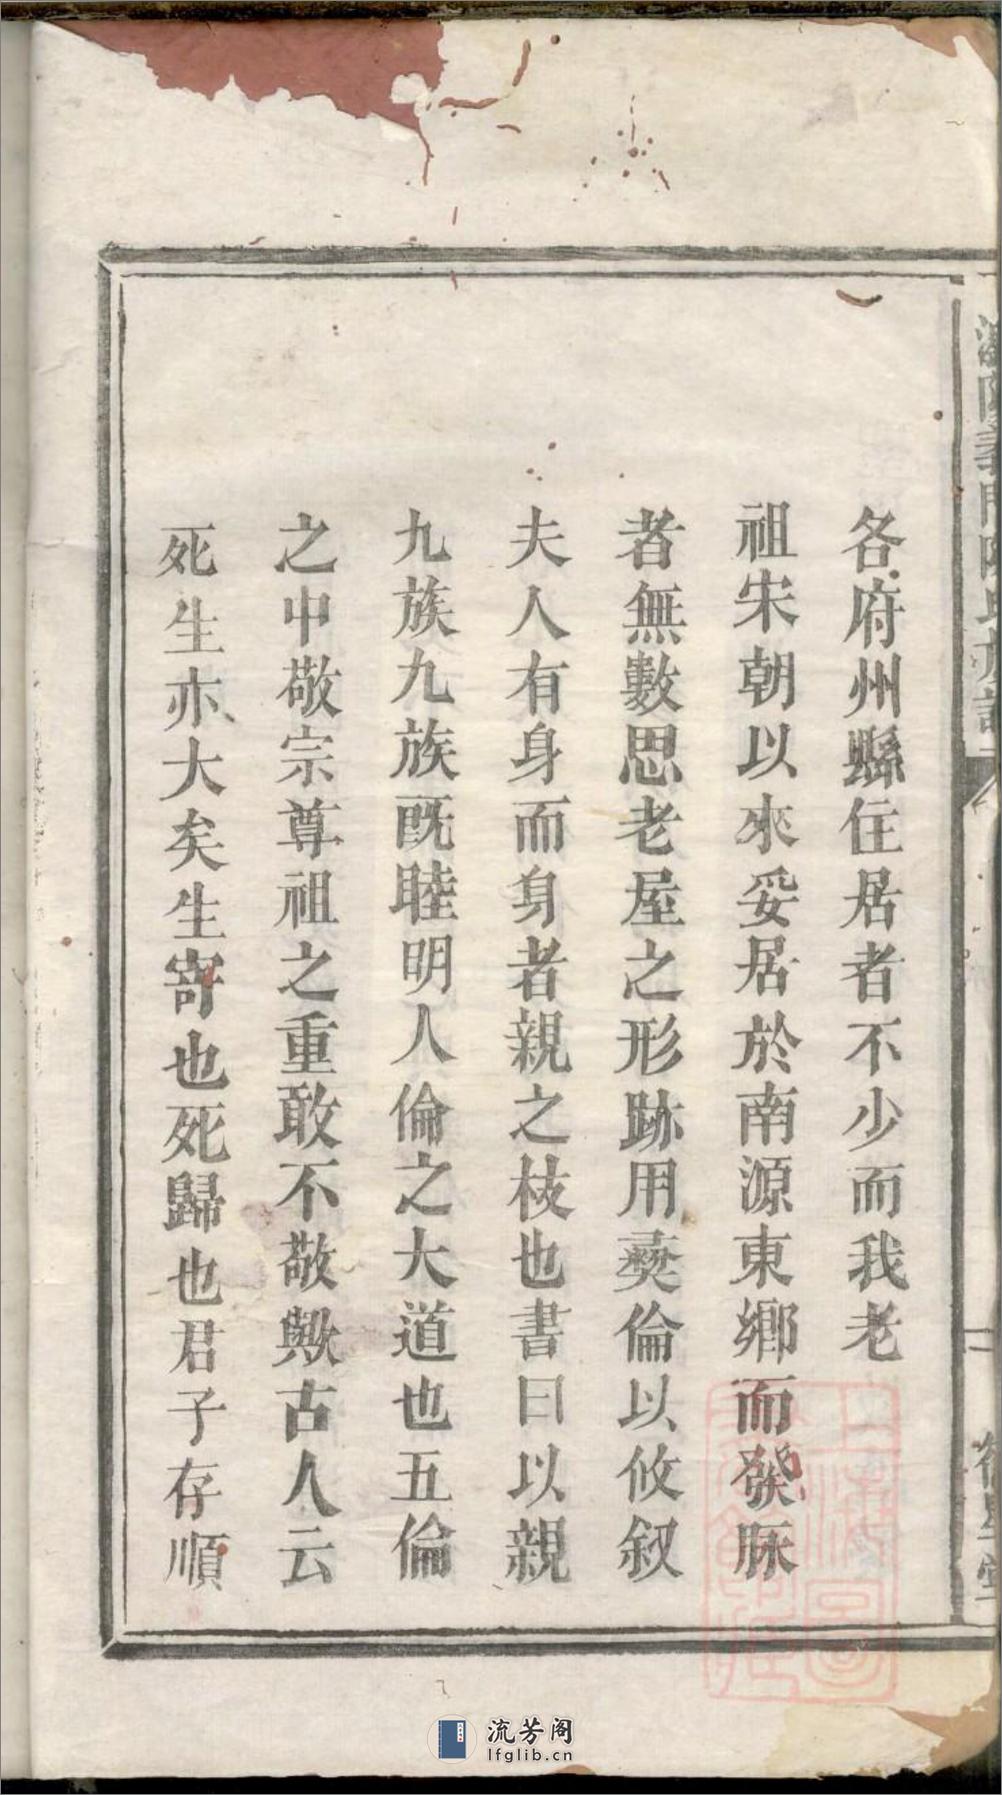 各府州縣住居者不少而我老
祖宋朝以來妥居於南源東鄉而發脉
者無數思老屋之形跡用彝倫以攸叙
夫人有身而身者親之枝也書曰以親
九族九族既睦明人倫之大道也五倫
之中敬宗尊祖之重敢不敬歟古人云
死生亦大矣生寄也死歸也君子存順
流芳阁
lfglib.cn